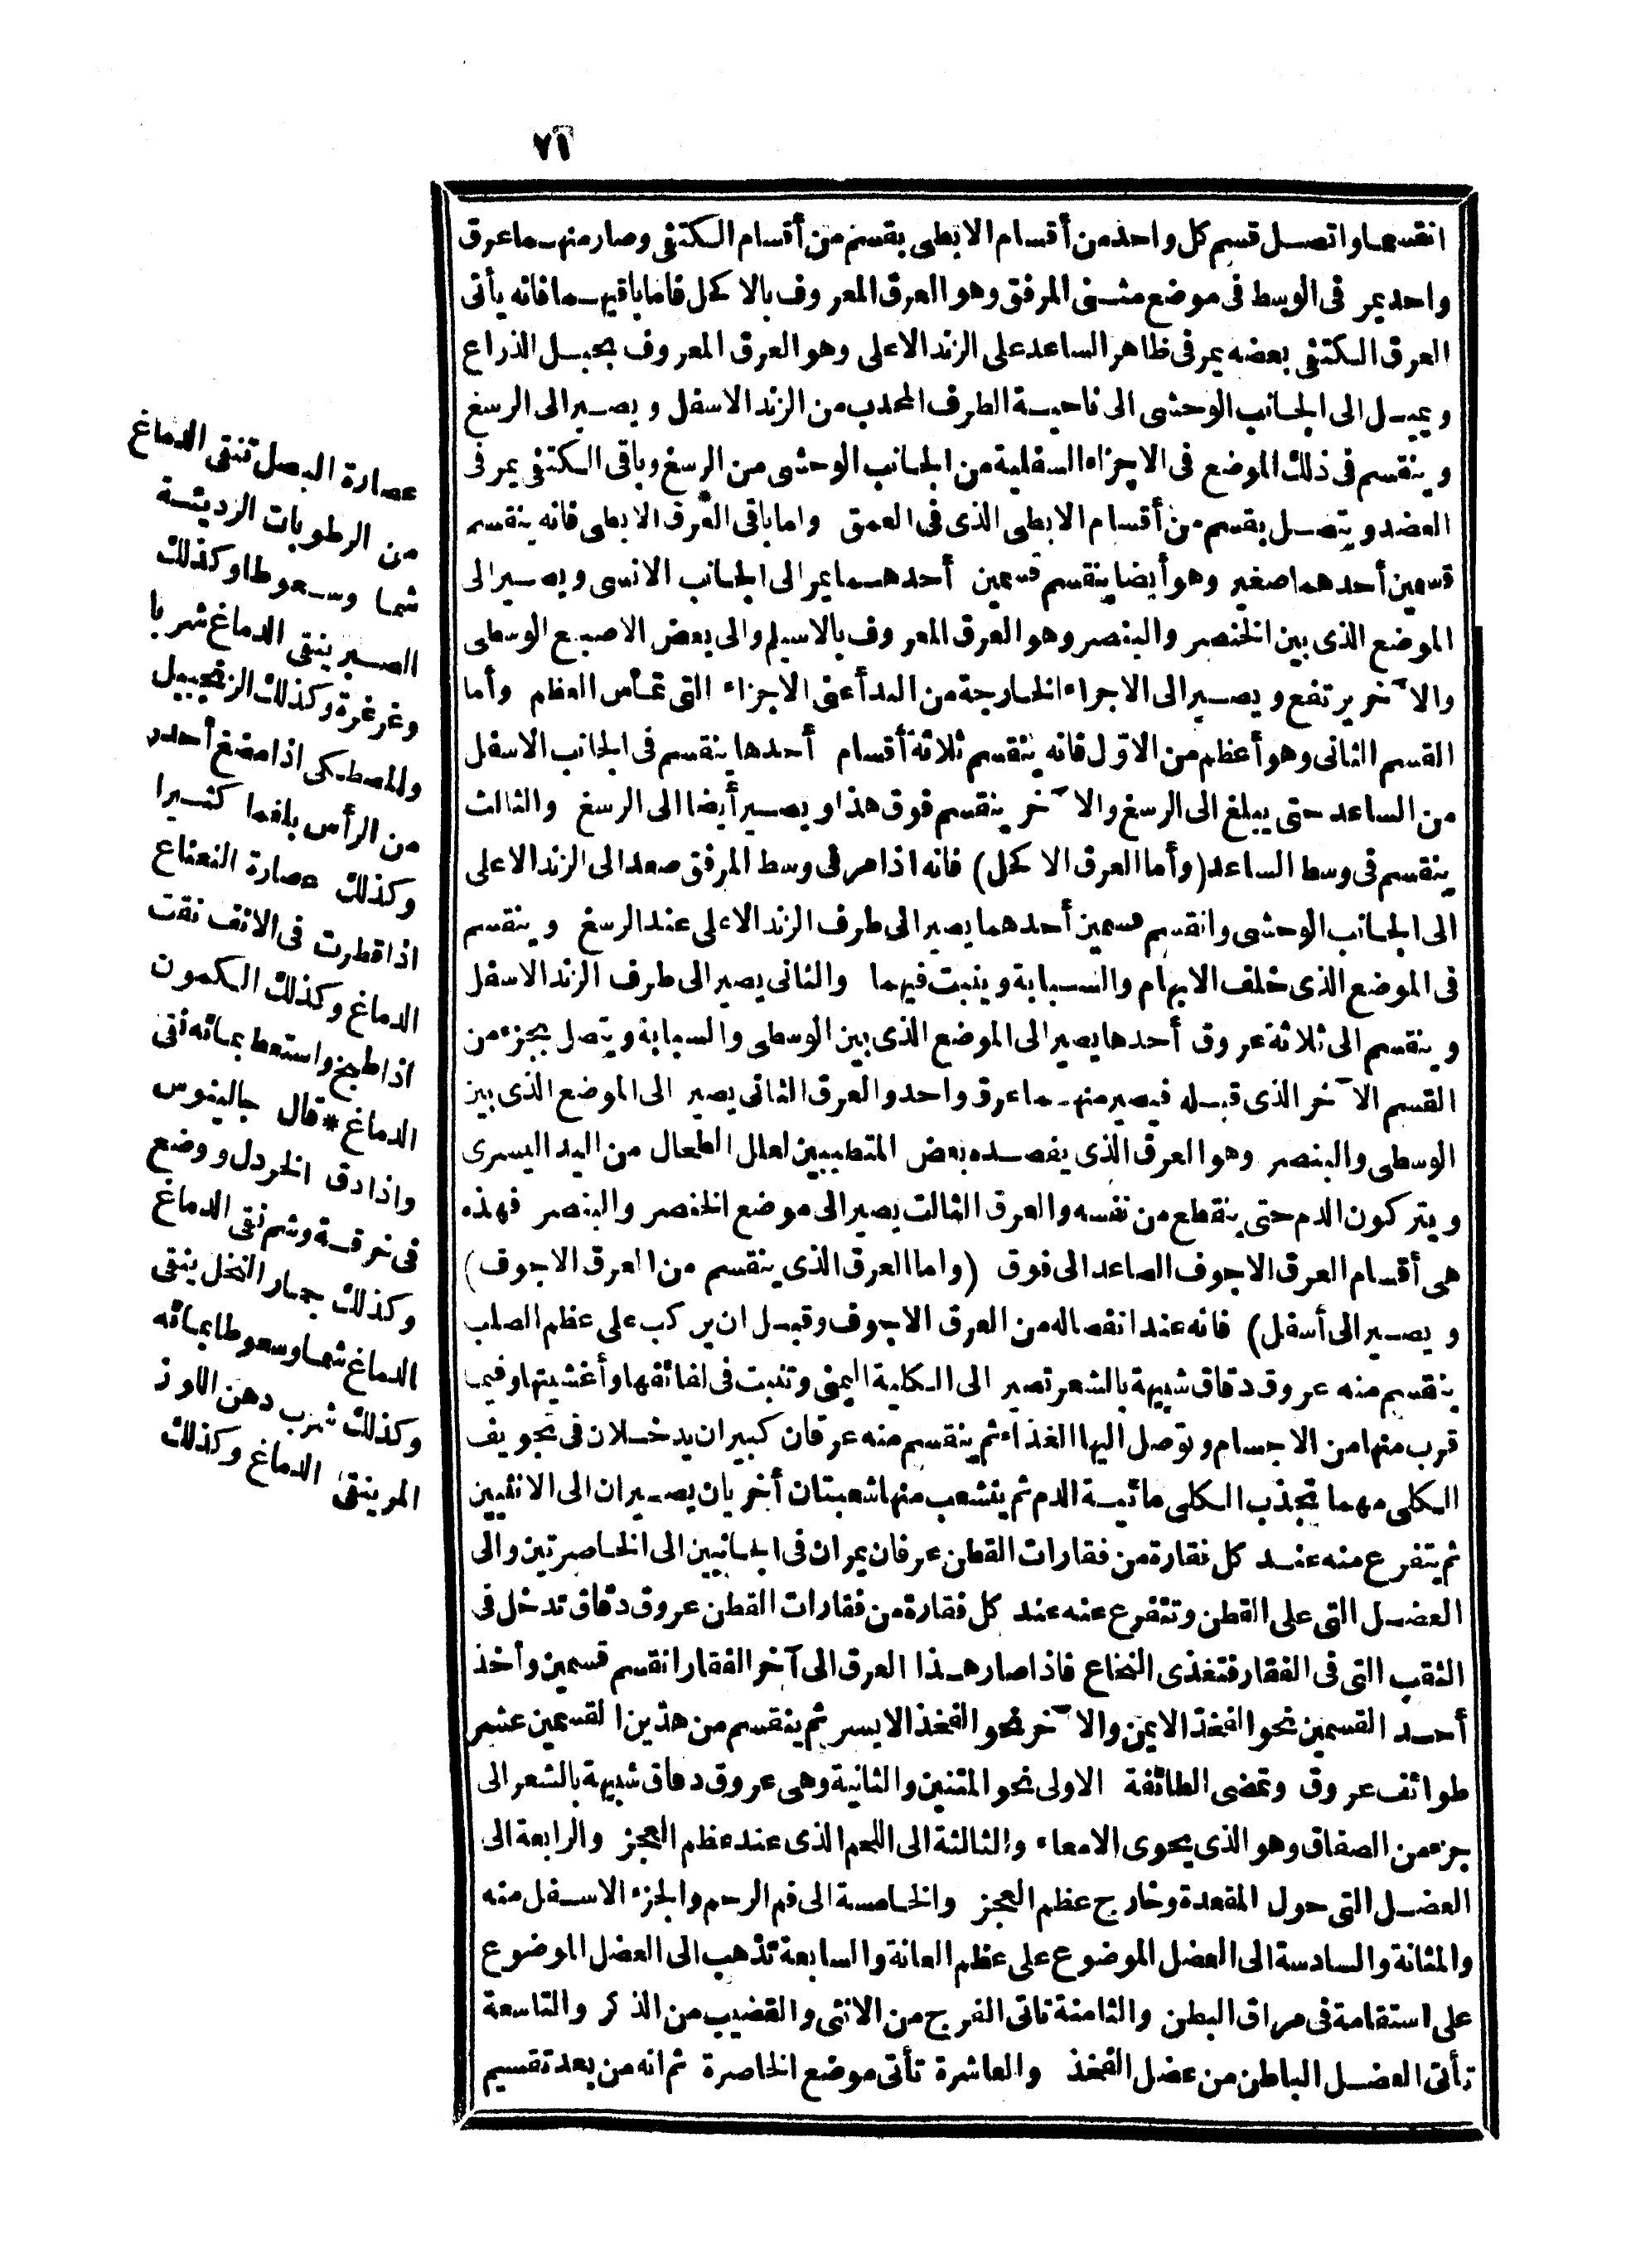 ٧١
انقسما واتصل قسم كل واحد من أقسام الابطى بقسم من أقسام الكتفى وصار منهما عرق
واحد يمر فى الوسط فى موضع مثنى المرفق وهو العرق المعروف بالاكحل فاما باقيهما فانه يأتى
العرق الكتفى بعضه يمر فى ظاهر الساعد على الزند الاعلى وهو العرق المعروف بحبل الذراع
ويميل الى الجانب الوحشى الى ناحية الطرف المحدب من الزند الاسفل ويصير الى الرسغ
وينقسم فى ذلك الموضع فى الاجزاء السفلية من الجانب الوحشى من الرسغ وباقى الكتفى يمر فى
العضد ويتصل بقسم من أقسام الابطى الذى فى العمق واما باقى العرق الابطى فانه ينقسم
قسمين أحدهما صغير وهو أيضا ينقسم قسمين أحدهما يمر الى الجانب الانسى ويصير الى
الموضع الذى بين الخنصر والبنصر وهو العرق المعروف بالاسيلم والى بعض الاصبع الوسطى
والآخر يرتفع ويصير الى الاجراء الخارجة من اليد أعنى الاجزاء التى تماس العظم وأما
القسم الثانى وهو أعظم من الاوّل فانه ينقسم ثلاثة أقسام أحدها ينقسم فى الجانب الاسفل
من الساعد حتى يبلغ الى الرسغ والآخر ينقسم فوق هذا ويصير أيضا الى الرسغ والثالث
ينقسم فى وسط الساعد (وأما العرق الاكحل) فانه اذا مر فى وسط المرفق صعد الى الزند الاعلى
الى الجانب الوحشى وانقسم قسمين أحدهما يصير الى طرف الزند الاعلى عند الرسغ وينقسم
فى الموضع الذى خلف الابهام والسبابة وينبت فيهما والثانى يصير الى طرف الزند الاسفل
وينقسم الى ثلاثة عروق أحدها يصير الى الموضع الذى بين الوسطى والسبابة ويتصل بجزء من
القسم الآخر الذى قبله فيصير منهما عرق واحد والعرق الثانى يصير الى الموضع الذى بين
الوسطى والبنصر وهو العرق الذى يفصده بعض المتطببين لعلل الطحال من اليد اليسرى
ويتركون الدم حتى ينقطع من نفسه والعرق الثالث يصير الى موضع الخنصر والبنصر فهذه
هى أقسام العرق الاجوف الصاعد الى فوق (واما العرق الذى ينقسم من العرق الاجوف)
ويصير الى أسفل) فانه عند انفصاله من العرق الاجوف وقبل ان يركب على عظم الصلب
ينقسم منه عروق دقاق شبيهة بالشعر تصير الى الكلية اليمنى وتنبت فى لفائفها وأغشيتها وفيما
قرب منها من الاجسام وتوصل اليها الغذاء ثم ينقسم منه عرقان كبيران يدخلان فى تجويف
الكلى مهما تجذب الكلى مائية الدم ثم يتشعب منها شعبتان أخريان يصيران الى الانثيين
ثم يتفرع منه عند كل نقارة من فقارات القطن عرقان يمران فى الجانبين الى الخاصرتين والى
العضل التى على القطن وتتفرع عنه عند كل فقارة من فقارات القطن عروق دقاق تدخل فى
الثقب التى فى الفقار فتغذى النخاع فاذا صار هذا العرق الى آخر الفقار انقسم قسمين وأخذ
أحد القسمين نحو الفخذ الايمن والآخر نحو الفخذ الايسر ثم ينقسم من هذين القسمين عشر
طوائف عروق وتمضى الطائفة الاولى نحو المتنين والثانية وهى عروق دقاق شبيهة بالشعر الى
جزء من الصفاق وهو الذى يحوى الامعاء والثالثة الى اللحم الذى عند عظم العجز والرابعة الى
العضل التى حول المقعدة وخارج عظم العجز والخامسة الى فم الرحم والجزء الاسفل منه
والمثانة والسادسة الى العضل الموضوع على عظم العانة والسابعة تذهب الى العضل الموضوع
على استقامة فى مراق البطن والثامنة تاتى الفرج من الانثى والقضيب من الذكر والتاسعة
تأتى العضل الباطن من عضل الفخذ والعاشرة تأتى موضع الخاصرة ثم انه من بعد تقسيم
عصارة البصل تنقى الدماغ
من الرطوبات الرديئة
شما وسعوطا وكذلك
الصبر ينقى الدماغ شربا
وغرغرة وكذلك الزنجبيل
والمصطكى اذا مضغ أحدر
من الرأس بلغما كثيرا
وكذلك عصارة النعناع
اذا قطرت فى الانف نقت
الدماغ وكذلك الكمون
اذا طبخ واستعط بمائه نقى
الدماغ * قال جالينوس
واذا دق الخردل ووضع
فى خرقة وشم نقى الدماغ
وكذلك جمار النخل ينقى
الدماغ شما وسعوطا بمائه
وكذلك شرب دهن اللوز
المر ينقى الدماغ وكذلك